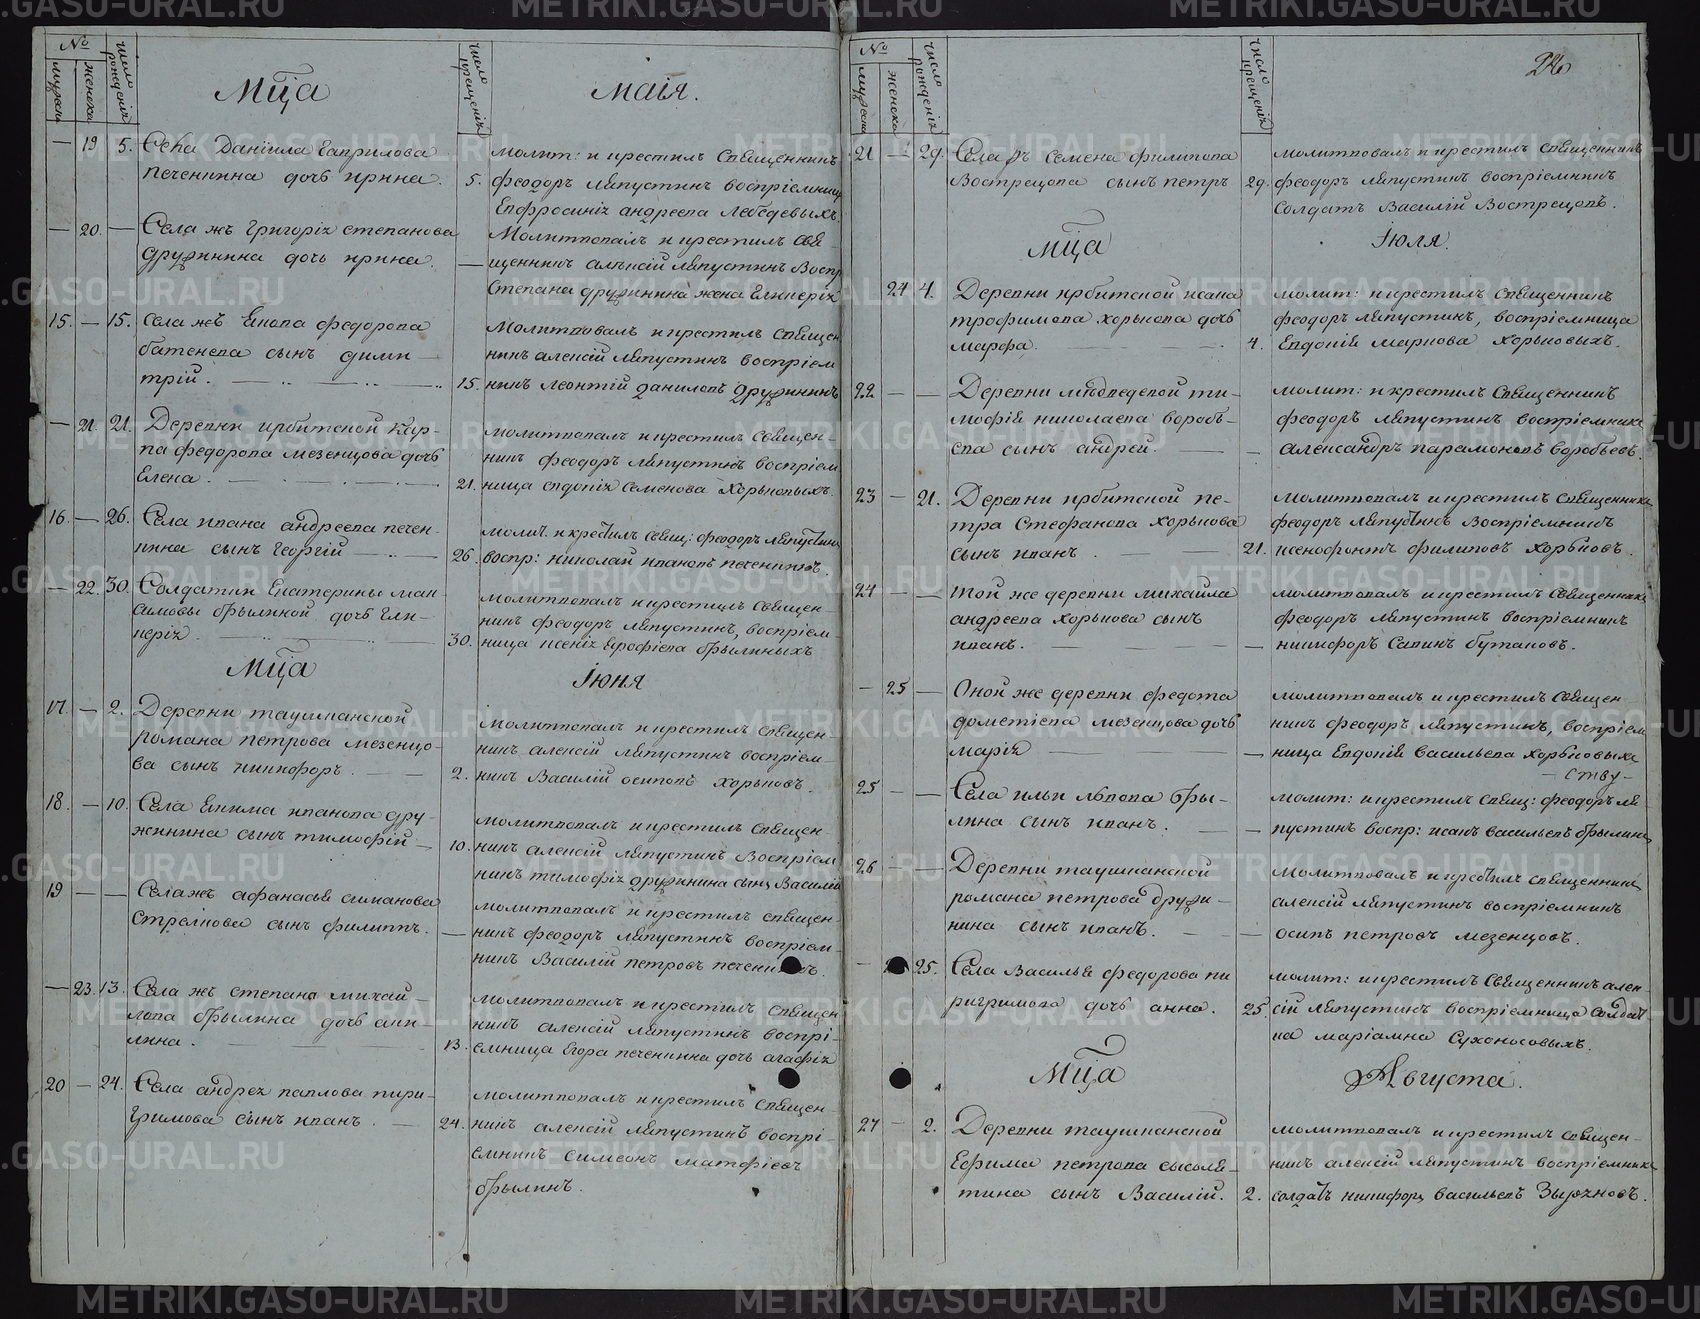 №
мужеска
женска
число рожденія
число крещенія
Мца маія.
— 19 5. Села Даніила Гаврилова
Печенкина дочь ирина.
молит: и крестилъ Священникъ
5. феодоръ Ляпустинъ воспріемница
Евфросинія андреева Лебедевыхъ
— 20. — Села жъ Григорія степанова
дружинина дочь ирина.
Молитвовалъ и крестилъ свя-
— щенникъ алексій Ляпустинъ Воспр
Степана дружинина жена Гликерія
15. — 15. Села жъ Іякова федорова
батенева сынъ дими-
трій.
Молитвовалъ и крестилъ священ
никъ алексій Ляпустинъ воспріем
15. никъ Леонтій даниловъ Дружининъ
— 21. 21. Деревни ирбитской Кар-
па федорова мезенцова дочь
Елена.
молитвовалъ и крестилъ священ-
никъ феодоръ Ляпустинъ воспріем
21. ница евдокія Семенова Хорьковыхъ.
16. — 26. Села ивана андреева печен-
кина сынъ Георгій
молит. и крестилъ свящ: феодоръ Ляпустинъ
26. воспр: николай ивановъ печенкинъ.
— 22. 30. Солдатки Екатерины мак-
симовы брылиной дочь Гли-
керія.
молитвовалъ и крестилъ священ-
никъ феодоръ Ляпустинъ, воспріем
30. ница ксенія Ерофіева брылиныхъ
Мца Іюня
17. — 2. Деревни таушканской
романа петрова мезенцо-
ва сынъ никифоръ.
Молитвовалъ и крестилъ священ-
никъ алексій Ляпустинъ воспріем-
2. никъ Василій осиповъ хорьковъ.
18. — 10. Села Екима иванова дру-
жинина сынъ тимофій
молитвовалъ и крестилъ священ-
10. никъ алексій Ляпустинъ Воспріем
никъ тимофія дружинина сынъ Василій
19 — — Села жъ афанасья симанова
Стрелкова сынъ филиппъ.
молитвовалъ и крестилъ священ-
— никъ феодоръ Ляпустинъ воспріем-
никъ Василій петровъ печенкинъ.
— 23. 13. Села жъ степана михай-
лова брылина дочь аки-
лина.
молитвовалъ и крестилъ священ
никъ алексій Ляпустинъ воспрі-
13. емница Егора печенкина дочь агафія
20 — 24. Села андрея павлова пири-
гримова сынъ иванъ.
молитвовалъ и крестилъ священ-
24. никъ алексій Ляпустинъ воспрі-
емникъ симеонъ матфіевъ
брылинъ.
№
мужеска
женска
число рожденія
число крещенія
21 — 29. Села жъ семена филипова
Вострецова сынъ петръ
молитвовалъ и крестилъ священникъ
29. феодоръ Ляпустинъ воспріемникъ
Солдатъ Василій Вострецовъ.
Мца Іюля.
24 4. Деревни ирбитской исака
трофимова хорькова дочь
марфа.
молит: и крестилъ священникъ
феодоръ Ляпустинъ, воспріемница
4. Евдокія маркова хорьковыхъ.
22 — — Деревни мѣдведевой ти-
мофія николаева воробь-
ева сынъ андрей.
молит: и крестилъ Священникъ
феодоръ Ляпустинъ воспріемникъ
— александръ парамоновъ воробьевъ.
23 — 21. Деревни ирбитской пе-
тра Стефанова хорькова
сынъ иванъ.
молитвовалъ и крестилъ священникъ
феодоръ Ляпустинъ Воспріемникъ
21. ксенофонтъ филиповъ хорьковъ.
24 — — той же деревни михаила
андреева хорькова сынъ
иванъ.
молитвовалъ и крестилъ священникъ
феодоръ Ляпустинъ воспріемникъ
— никифоръ Савинъ бутаковъ.
— 25 — Оной же деревни федота
дометіева мезенцова дочь
марія
молитвовалъ и крестилъ священ-
никъ феодоръ Ляпустинъ, воспріем
— ница Евдокія васильева хорьковыхъ
25 — — Села ильи львова бры-
лина сынъ иванъ.
молит: и крестилъ свящ: феодоръ Ля-
— пустинъ воспр: исакъ васильевъ брылинъ
26 — — Деревни таушканской
романа петрова Друж-
инина сынъ иванъ.
Молитвовалъ и крестилъ священникъ
алексій Ляпустинъ воспріемникъ
— осипъ петровъ мезенцовъ.
— 25. Села Василья федорова пи
ригримова дочь анна.
молит: и крестилъ священникъ алек-
25. сій Ляпустинъ воспріемница солдат
ка маріамна Сухоносовыхъ.
Мца Августа.
27 — 2. Деревни таушканской
Ефима петрова сысоля-
тина сынъ Василій.
молитвовалъ и крестилъ священ-
никъ алексій Ляпустинъ воспріемникъ
2. солдатъ никифоръ васильевъ Зыряновъ.
METRIKI.GASO-URAL.RU